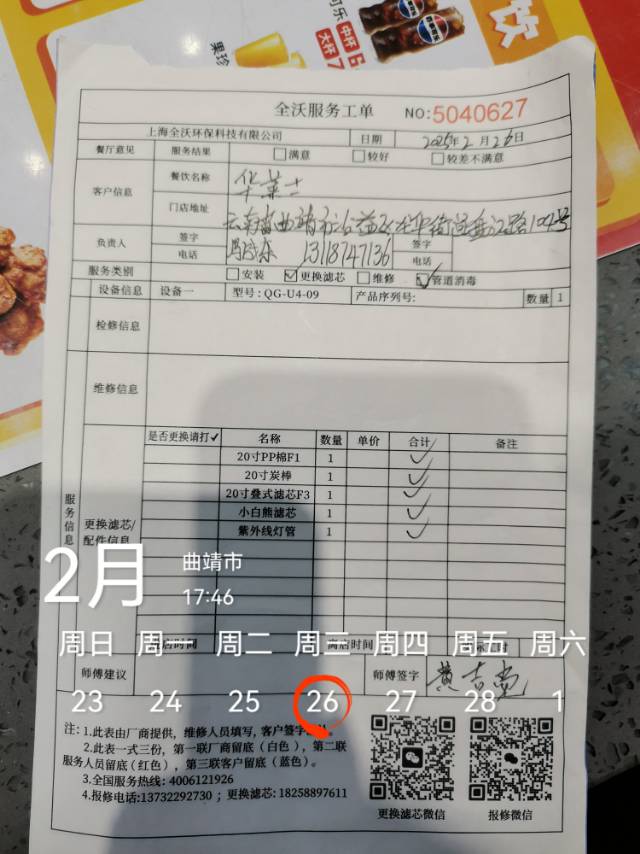 可乐 中杯 6
大杯 7
果珍
饮
全沃服务工单 NO:5040627
上海全沃环保科技有限公司 日期 2025年2月26日
餐厅意见 服务结果 满意 较好 较差不满意
客户信息 餐饮名称 华莱士
门店地址 云南省曲靖市沾益区龙华街道盘江路104号
负责人 签字 签字
电话 13118747136 电话
服务类别 安装 ✓更换滤芯 维修 ✓管道消毒
设备信息 设备一 型号:QG-U4-09 产品序列号: 数量 1
检修信息
维修信息
服务信息
是否更换请打✓ 名称 数量 单价 合计 备注
20寸PP棉F1 1 ✓
20寸炭棒 1 ✓
20寸叠式滤芯F3 1 ✓
小白熊滤芯 1 ✓
紫外线灯管 1 ✓
更换滤芯/
配件信息
2月 曲靖市
17:46
周日 周一 周二 周三 周四 周五 周六
时间 离店时间
师傅建议 师傅签字 黄吉堂
23 24 25 26 27 28 1
注:1.此表由厂商提供,维修人员填写,客户签字
2.此表一式三份,第一联厂商留底(白色),第二联
服务人员留底(红色),第三联客户留底(蓝色)。
3.全国服务热线:4006121926
4.报修电话:13732292730;更换滤芯:18258897611
更换滤芯微信 报修微信